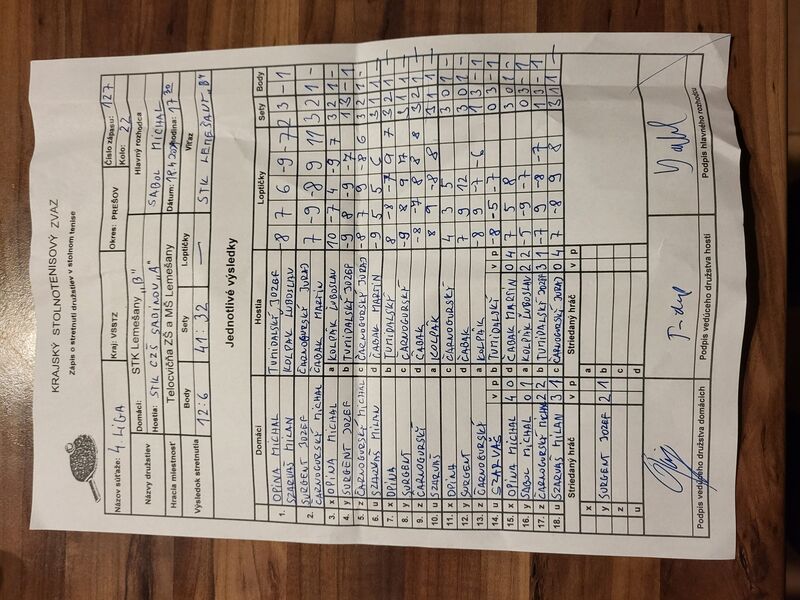 KRAJSKÝ STOLNOTENISOVÝ ZVÄZ
Zápis o stretnutí družstiev v stolnom tenise
Názov súťaže: 4. LIGA Kraj: VSSTZ Okres: PREŠOV Číslo zápasu: 127
Kolo: 22
Názvy družstiev Domáci: STK Lemešany "B" Hlavný rozhodca
Hostia: STK CZŠ SABINOV "A" SABOL MICHAL
Hracia miestnosť Telocvičňa ZŠ a MŠ Lemešany Dátum: hodina: 17 30
Výsledok stretnutia Body Sety Loptičky Víťaz
12:6 41:32 — STK LEMEŠANY "B"
Jednotlivé výsledky
Domáci Hostia Loptičky Sety Body
1. OPINA MICHAL TUMIDALSKÝ JOZEF -8 7 6 -9 -7 2 3 - 1
SZARVAŠ MILAN KOLPÁK ĽUBOSLAV
2. SURGENT JOZEF ČARNOGURSKÝ JURAJ 7 -9 8 9 11 3 2 1 -
ČARNOGURSKÝ MICHAL ČABAK MARTIN
3. x OPINA MICHAL a KOLPÁK ĽUBOSLAV 10 -7 4 -9 7 3 2 1 -
4. y SURGENT JOZEF b TUMIDALSKÝ JOZEF -9 8 -9 -7 1 3 - 1
5. z ČARNOGURSKÝ MICHAL c ČARNOGURSKÝ JURAJ 8 7 9 -8 6 3 2 1 -
6. u SZARVAŠ MILAN d ČABAK MARTIN -9 5 5 6 3 1 1 -
7. x OPINA b TUMIDALSKÝ 8 -8 -7 9 7 3 2 1 -
8. y SURGENT c ČARNOGURSKÝ
9. z ČARNOGURSKÝ d ČABAK
10. u SZARVAŠ a KOLPÁK
11. x OPINA c ČARNOGURSKÝ 4 3 5 3 0 1 -
12. y SURGENT d ČABAK 7 9 12 3 0 1 -
13. z ČARNOGURSKÝ a KOLPÁK -8 9 -7 -6 1 3 - 1
14. u SZARVAŠ v p b TUMIDALSKÝ v p -8 -5 -7 0 3 - 1
15. x OPINA MICHAL 4 0 d ČABAK MARTIN 0 4 7 5 8 3 0 1 -
16. y SABOL MICHAL 0 1 a KOLPÁK ĽUBOSLAV 2 2 -5 -9 -7 0 3 - 1
17. z ČARNOGURSKÝ MICHAL 2 2 b TUMIDALSKÝ JOZEF 3 1 -7 9 -8 -7 1 3 - 1
18. u SZARVAŠ MILAN 3 1 c ČARNOGURSKÝ JURAJ 0 4 3 1 1 -
Striedaný hráč v p Striedaný hráč v p
x a
y SURGENT JOZEF 2 1 b
z c
u d
Podpis vedúceho družstva domácich Podpis vedúceho družstva hostí Podpis hlavného rozhodcu